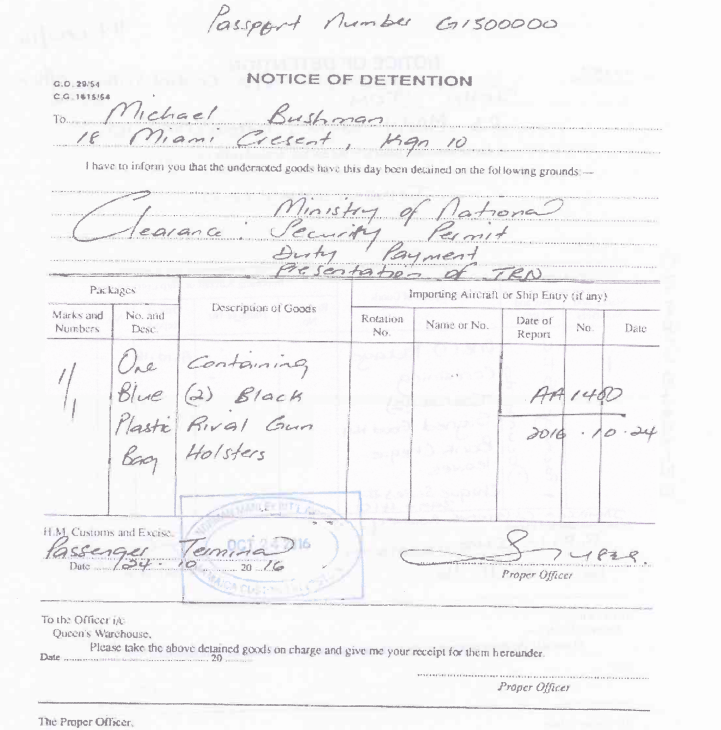 Passport Number G1500000
NOTICE OF DETENTION
G.D. 29/54
C.G. 1615/54
To Michael Bushman
18 Miami Cresent, Kgn 10
I have to inform you that the undernoted goods have this day been detained on the following grounds:—
Ministry of National
Clearance: Security Permit
Duty Payment
Presentation of TRN
Packages
Description of Goods
Importing Aircraft or Ship Entry (if any)
Marks and Numbers
No. and Desc.
Rotation No.
Name or No.
Date of Report
No.
Date
1/1
One Containing
Blue (2) Black
AA 1460
Plastic Rival Gun
2016.10.24
Bag Holsters
H.M. Customs and Excise.
Passenger Terminal
Date 24.10 2016
OCT 24 2016
Proper Officer
To the Officer i/c
Queen's Warehouse,
Please take the above detained goods on charge and give me your receipt for them hereunder.
Date 20
Proper Officer
The Proper Officer.